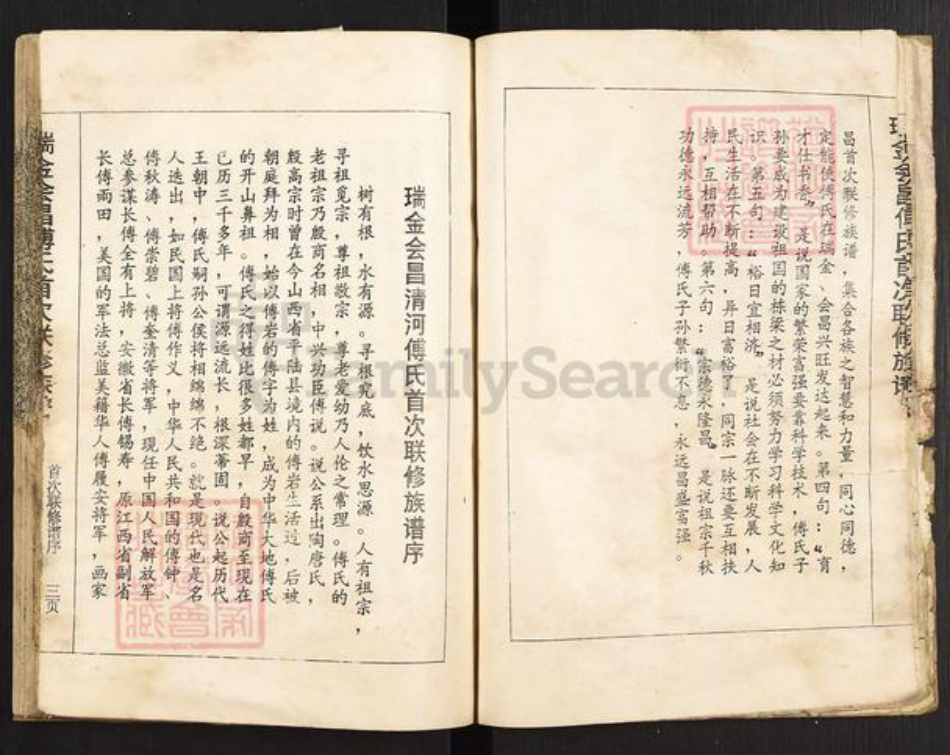 昌首次联修族谱，集合各族之智慧和力量，同心同德，
定能使傅氏在瑞金、会昌兴旺发达起来。第四句：“育
才仕书叁”，是说国家的繁荣富强要靠科学技术，傅氏子
孙要成为建设祖国的栋梁之材必须努力学习科学文化知
识。第五句：“裕日宜相济”，是说社会在不断发展，人
民生活在不断提高，异日富裕了，同宗一脉还要互相扶
持，互相帮助。第六句：“宗德永隆昌”，是说祖宗千秋
功德永远流芳，傅氏子孙繁衍不息，永远昌盛富强。
瑞金会昌清河傅氏首次联修族谱序
树有根，水有源。寻根究底，饮水思源。人有祖宗，
寻祖觅宗，尊祖敬宗，尊老爱幼乃人伦之常理。傅氏的
老祖宗乃殷商名相，中兴功臣傅说。说公系出陶唐氏，
殷高宗时曾在今山西省平陆县境内的傅岩生活过，后被
朝庭拜为相，始以傅岩的傅字为姓，成为中华大地傅氏
的开山鼻祖。傅氏之得姓比很多姓都早，自殷商至现在
已历三千多年，可谓源远流长，根深蒂固。说公起历代
王朝中，傅氏嗣孙公侯将相绵绵不绝。就是现代也是名
人迭出，如民国上将傅作义，中华人民共和国的傅钟、
傅秋涛、傅崇碧、傅奎清等将军，现任中国人民解放军
总参谋长傅全有上将，安徽省长傅锡寿，原江西省副省
长傅雨田，美国的军法总监美籍华人傅履安将军，画家
瑞金会昌傅氏首次联修族谱
首次联修谱序
三页
FamilySearch